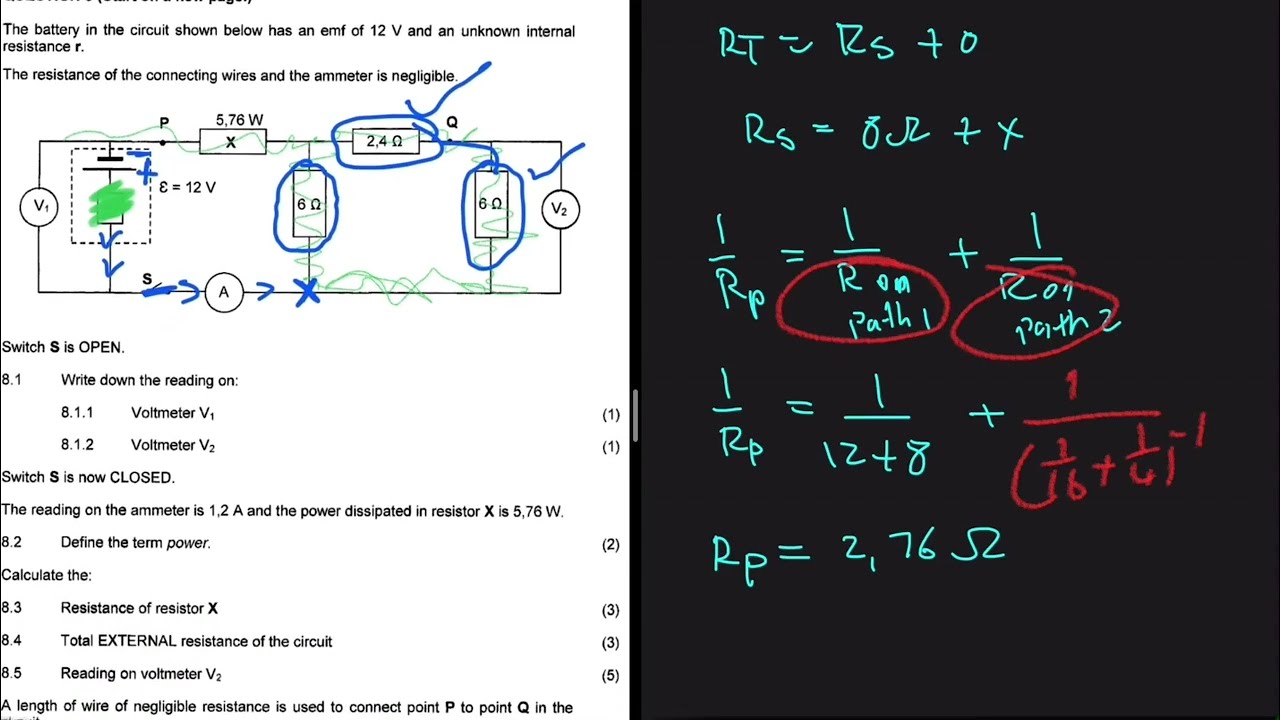 The battery in the circuit shown below has an emf of 12 V and an unknown internal
resistance r.
The resistance of the connecting wires and the ammeter is negligible.
P
5,76 W
X
2,4 Ω
Q
V1
ε = 12 V
6 Ω
6 Ω
V2
S
A
Switch S is OPEN.
8.1 Write down the reading on:
8.1.1 Voltmeter V1 (1)
8.1.2 Voltmeter V2 (1)
Switch S is now CLOSED.
The reading on the ammeter is 1,2 A and the power dissipated in resistor X is 5,76 W.
8.2 Define the term power. (2)
Calculate the:
8.3 Resistance of resistor X (3)
8.4 Total EXTERNAL resistance of the circuit (3)
8.5 Reading on voltmeter V2 (5)
A length of wire of negligible resistance is used to connect point P to point Q in the
RT = Rs + 0
Rs = 8Ω + x
1/Rp = 1/R on path 1 + 1/R on path 2
1/Rp = 1/12+8 + 1/(1/16 + 1/4)-1
Rp = 2,76 Ω